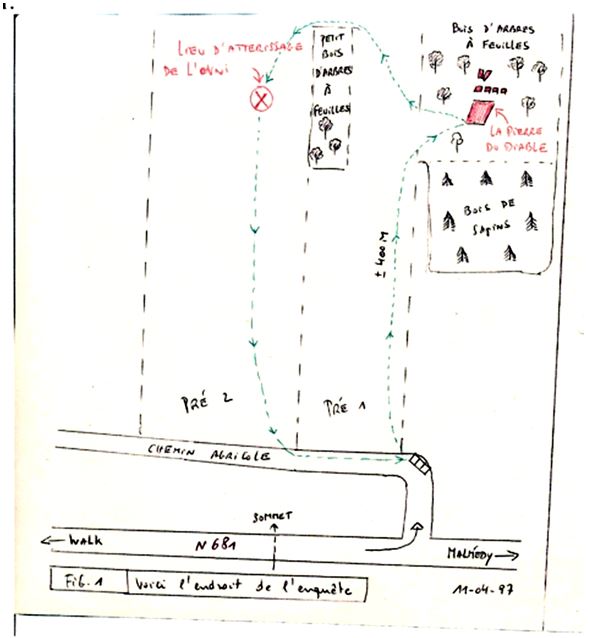 1.
BOIS D'ARBRES
À FEUILLES
LIEU D'ATTERISSAGE
DE L'OVNI
PETIT
BOIS
D'ARBRES
À
FEUILLES
LA PIERRE
DU DIABLE
BOIS DE
SAPINS
± 400 M
PRÉ 2
PRÉ 1
CHEMIN AGRICOLE
SOMMET
WALK
N 681
MALMÉDY
Fig. 1
Voici l'endroit de l'enquête
11-04-97